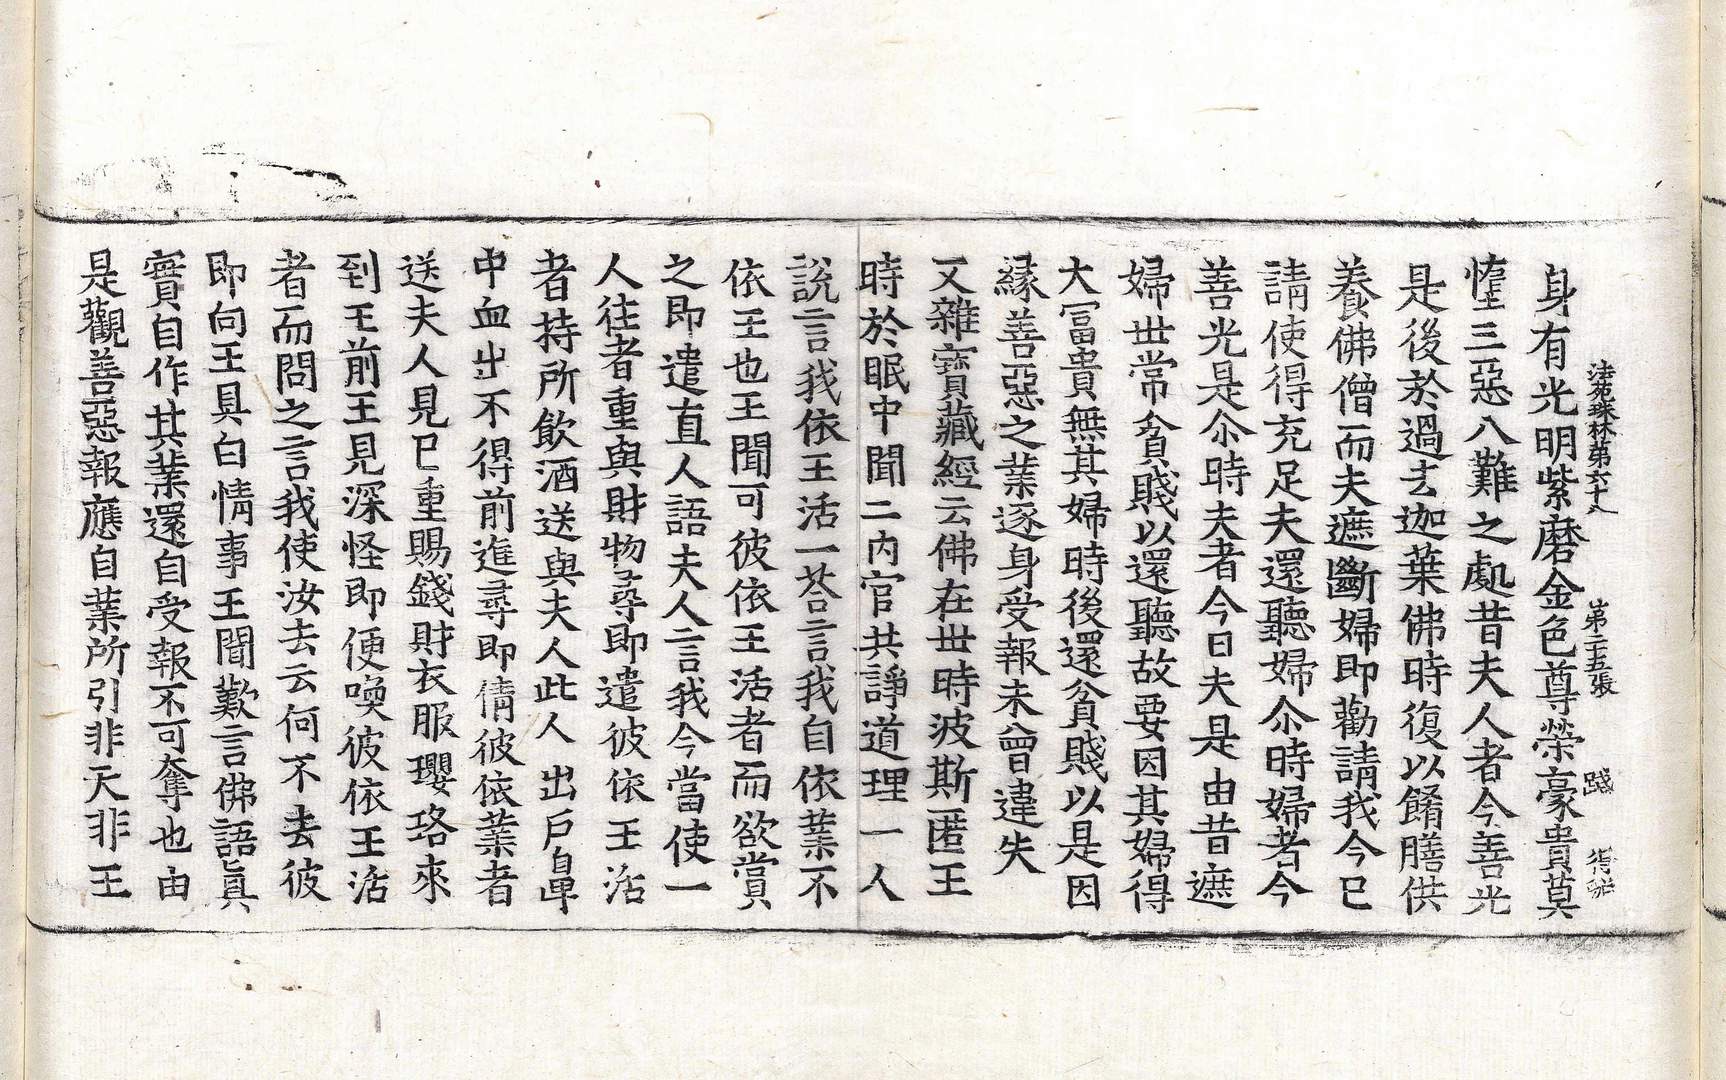 法苑珠林第六十八 第二十五張 踐
身有光明紫磨金色尊榮豪貴莫
憧三惡八難之處昔夫人者今善光
是後於過去迦葉佛時復以餚膳供
養佛僧而夫遮斷婦即勸請我今已
請使得充足夫還聽婦尒時婦者今
善光是尒時夫者今日夫是由昔遮
婦世常貧賤以還聽故要因其婦得
大富貴無其婦時後還貧賤以是因
緣善惡之業逐身受報未曾違失
又雜寶藏經云佛在世時波斯匿王
時於眠中聞二內官共諍道理一人
說言我依王活一荅言我自依業不
依王也王聞可彼依王活者而欲賞
之即遣直人語夫人言我今當使一
人往者重與財物尋即遣彼依王活
者持所飲酒送與夫人此人出戶鼻
中血出不得前進尋即倩彼依業者
送夫人見已重賜錢財衣服瓔珞來
到王前王見深怪即便喚彼依王活
者而問之言我使汝去云何不去彼
即向王具白情事王聞歎言佛語眞
實自作其業還自受報不可奪也由
是觀善惡報應自業所引非天非王